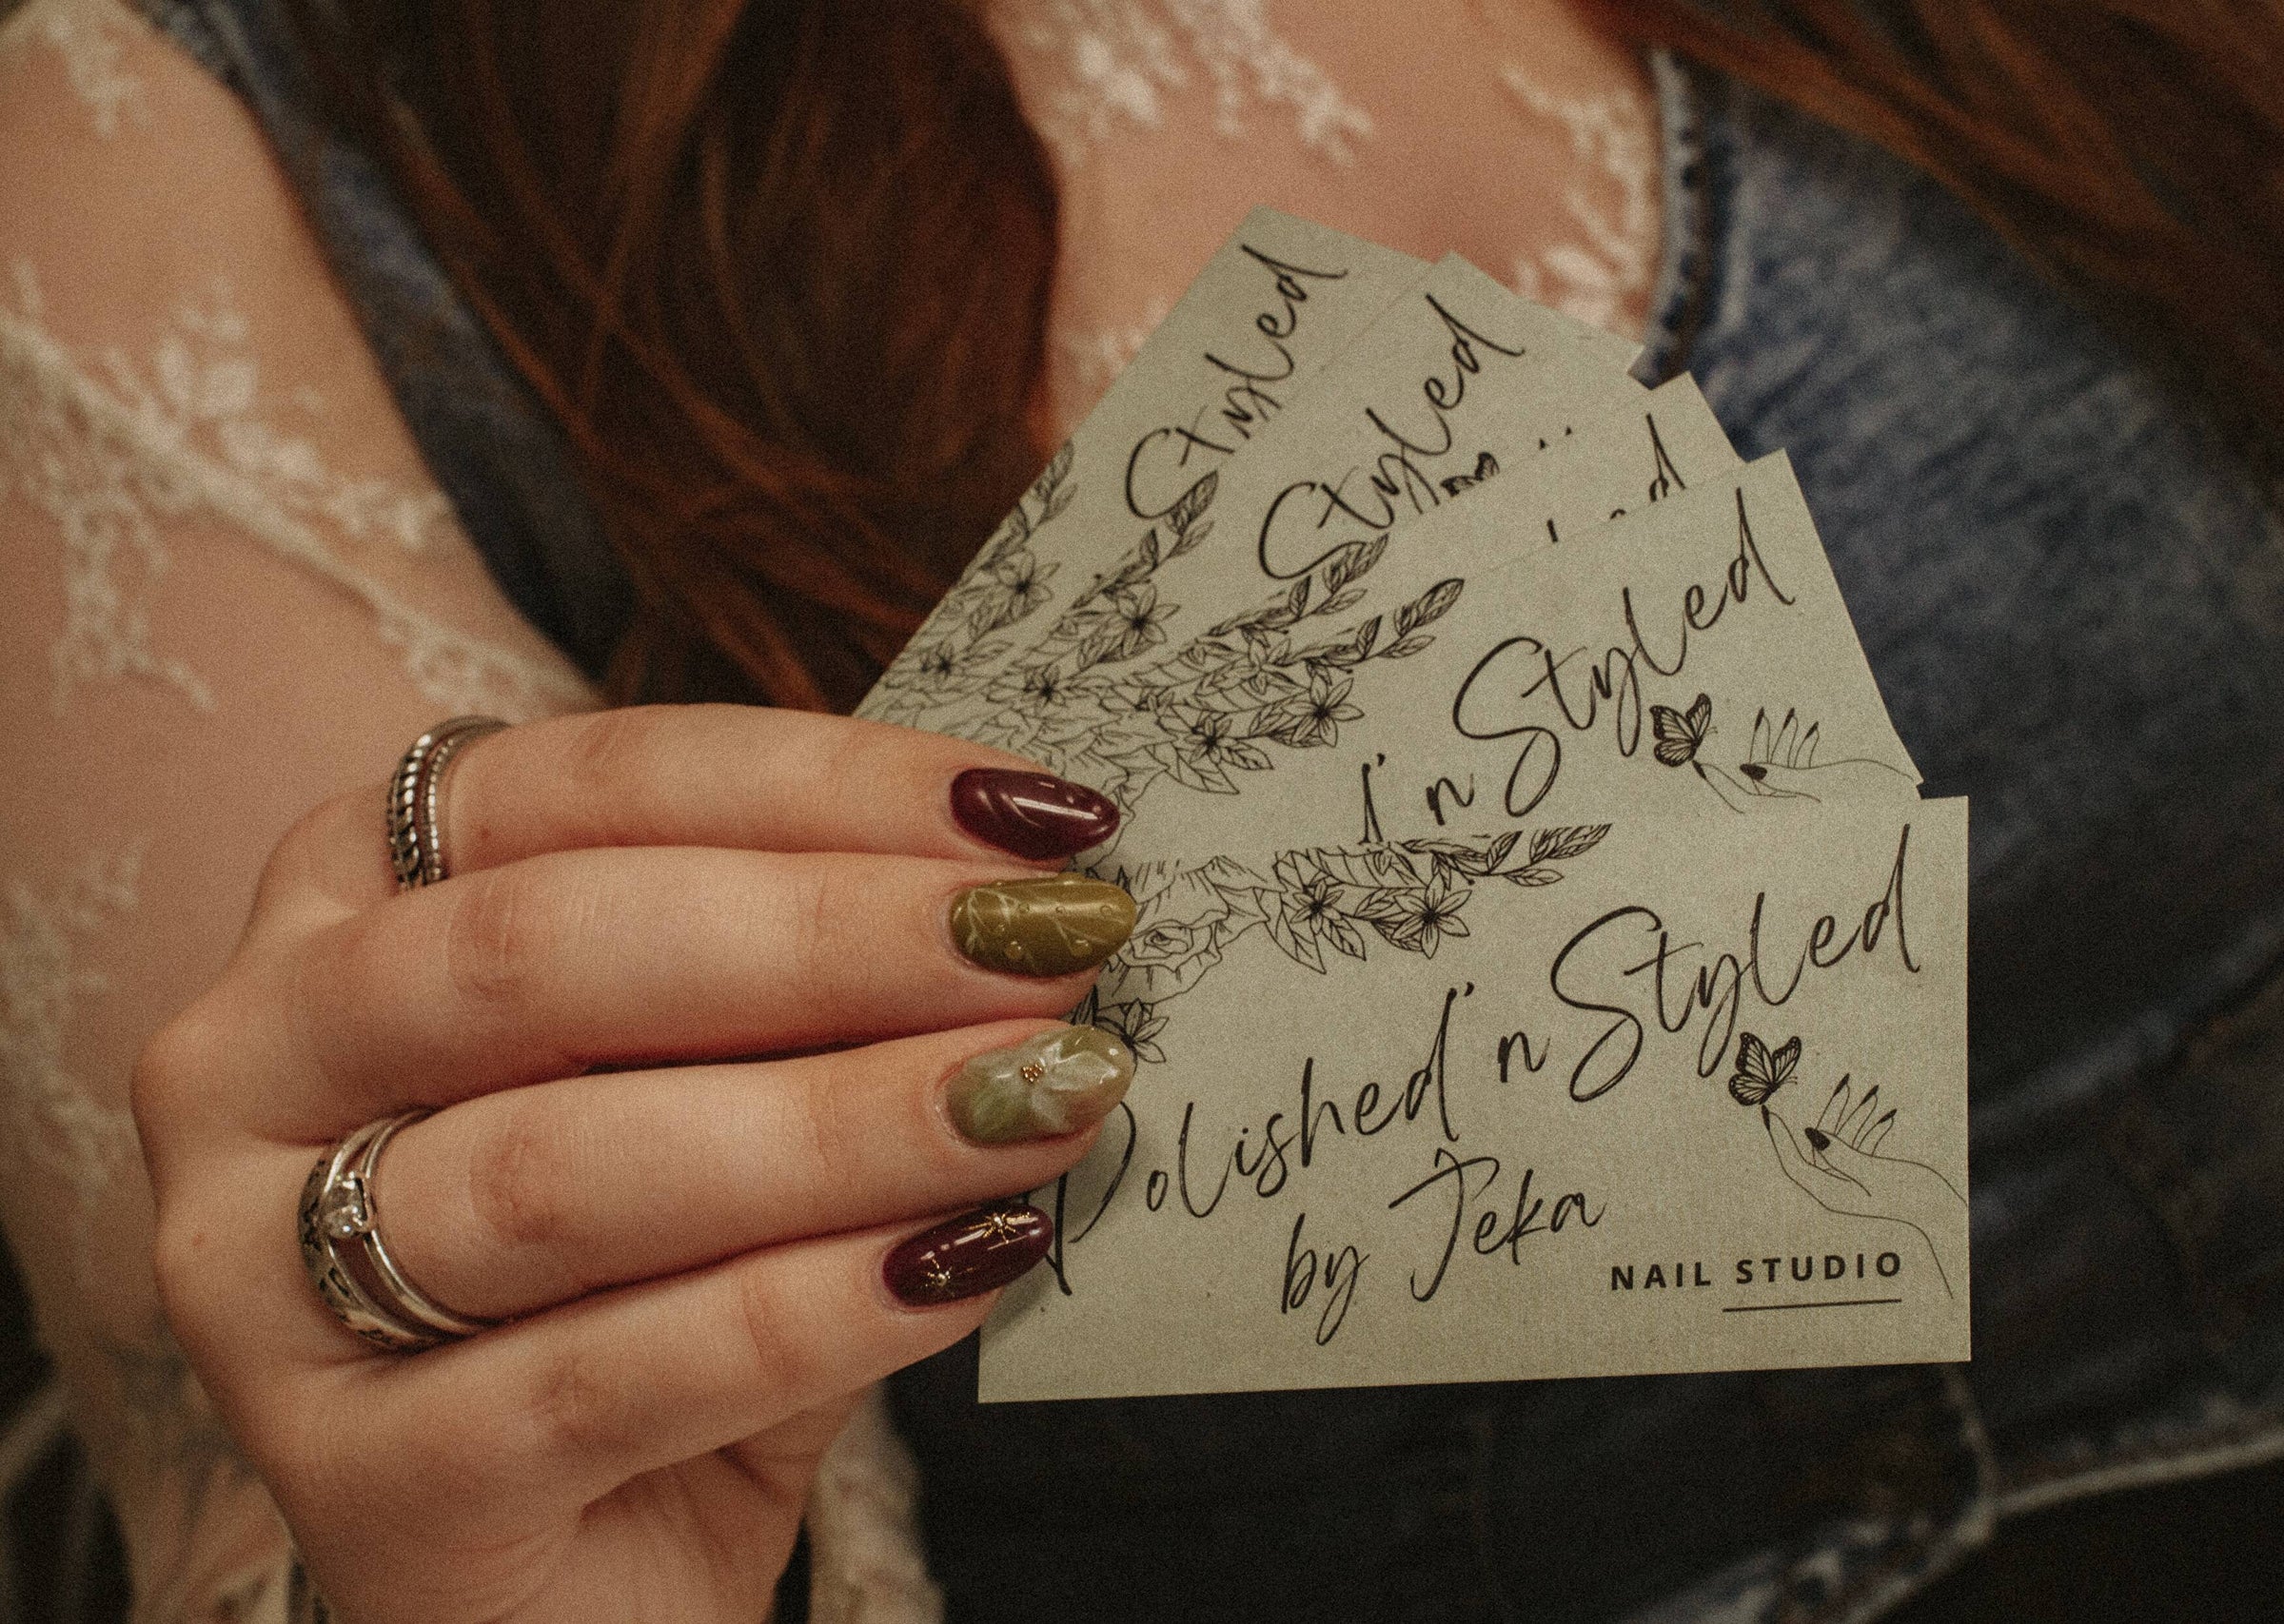 Styled
Styled
'n Styled
Polished 'n Styled
by Jeka
NAIL STUDIO